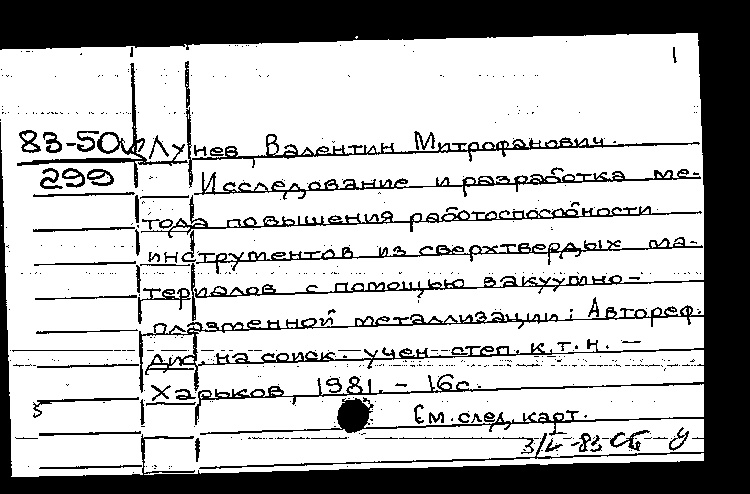 1
83-50
299
Лунев, Валентин Митрофанович.
Исследование и разработка ме-
тода повышения работоспособности
инструментов из сверхтвердых ма-
териалов с помощью вакуумно-
плазменной металлизации: Автореф.
дис. на соиск. учен. степ. к.т.н. –
Харьков, 1981. – 16с.
См. след. карт.